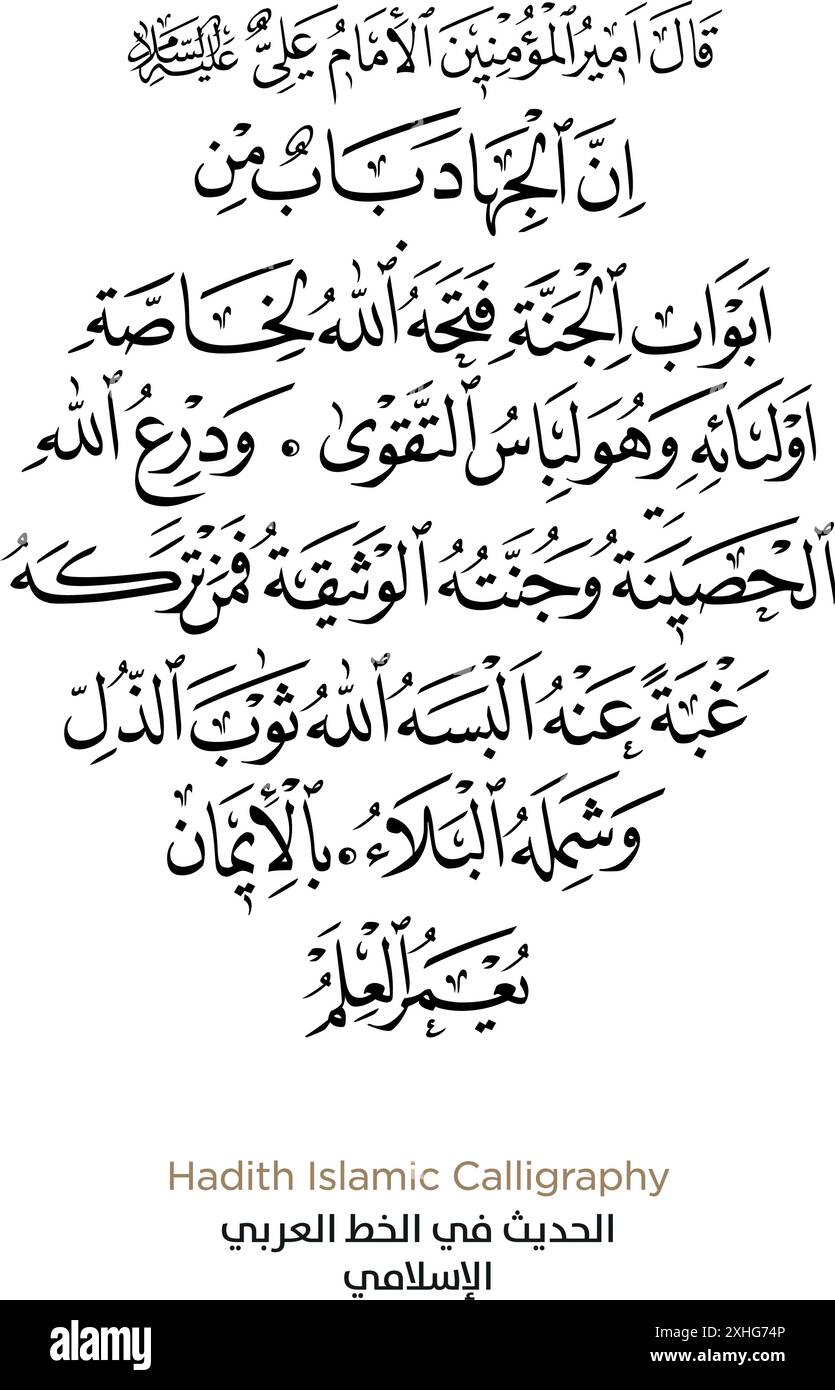 قَالَ اَمِيرُ الْمُؤْمِنِينَ الْأِمَامُ عَلِيٌّ عَلَيْهِ السَّلَامُ
اِنَّ الْجِهَادَ بَابٌ مِنْ
اَبْوَابِ الْجَنَّةِ فَتَحَهُ اللهُ لِخَاصَّةِ
اَوْلِيَائِهِ وَهُوَ لِبَاسُ التَّقْوٰى • وَدِرْعُ اللهِ
الْحَصِينَةُ وَجُنَّتُهُ الْوَثِيقَةُ فَمَنْ تَرَكَهُ
رَغْبَةً عَنْهُ اَلْبَسَهُ اللهُ ثَوْبَ الذُّلِّ
وَشَمِلَهُ الْبَلَاءُ • بِالْأِيمَانِ
يُعْمَرُ الْعِلْمُ
Hadith Islamic Calligraphy
الحديث في الخط العربي
الإسلامي
alamy
Image ID: 2XHG74P
www.alamy.com